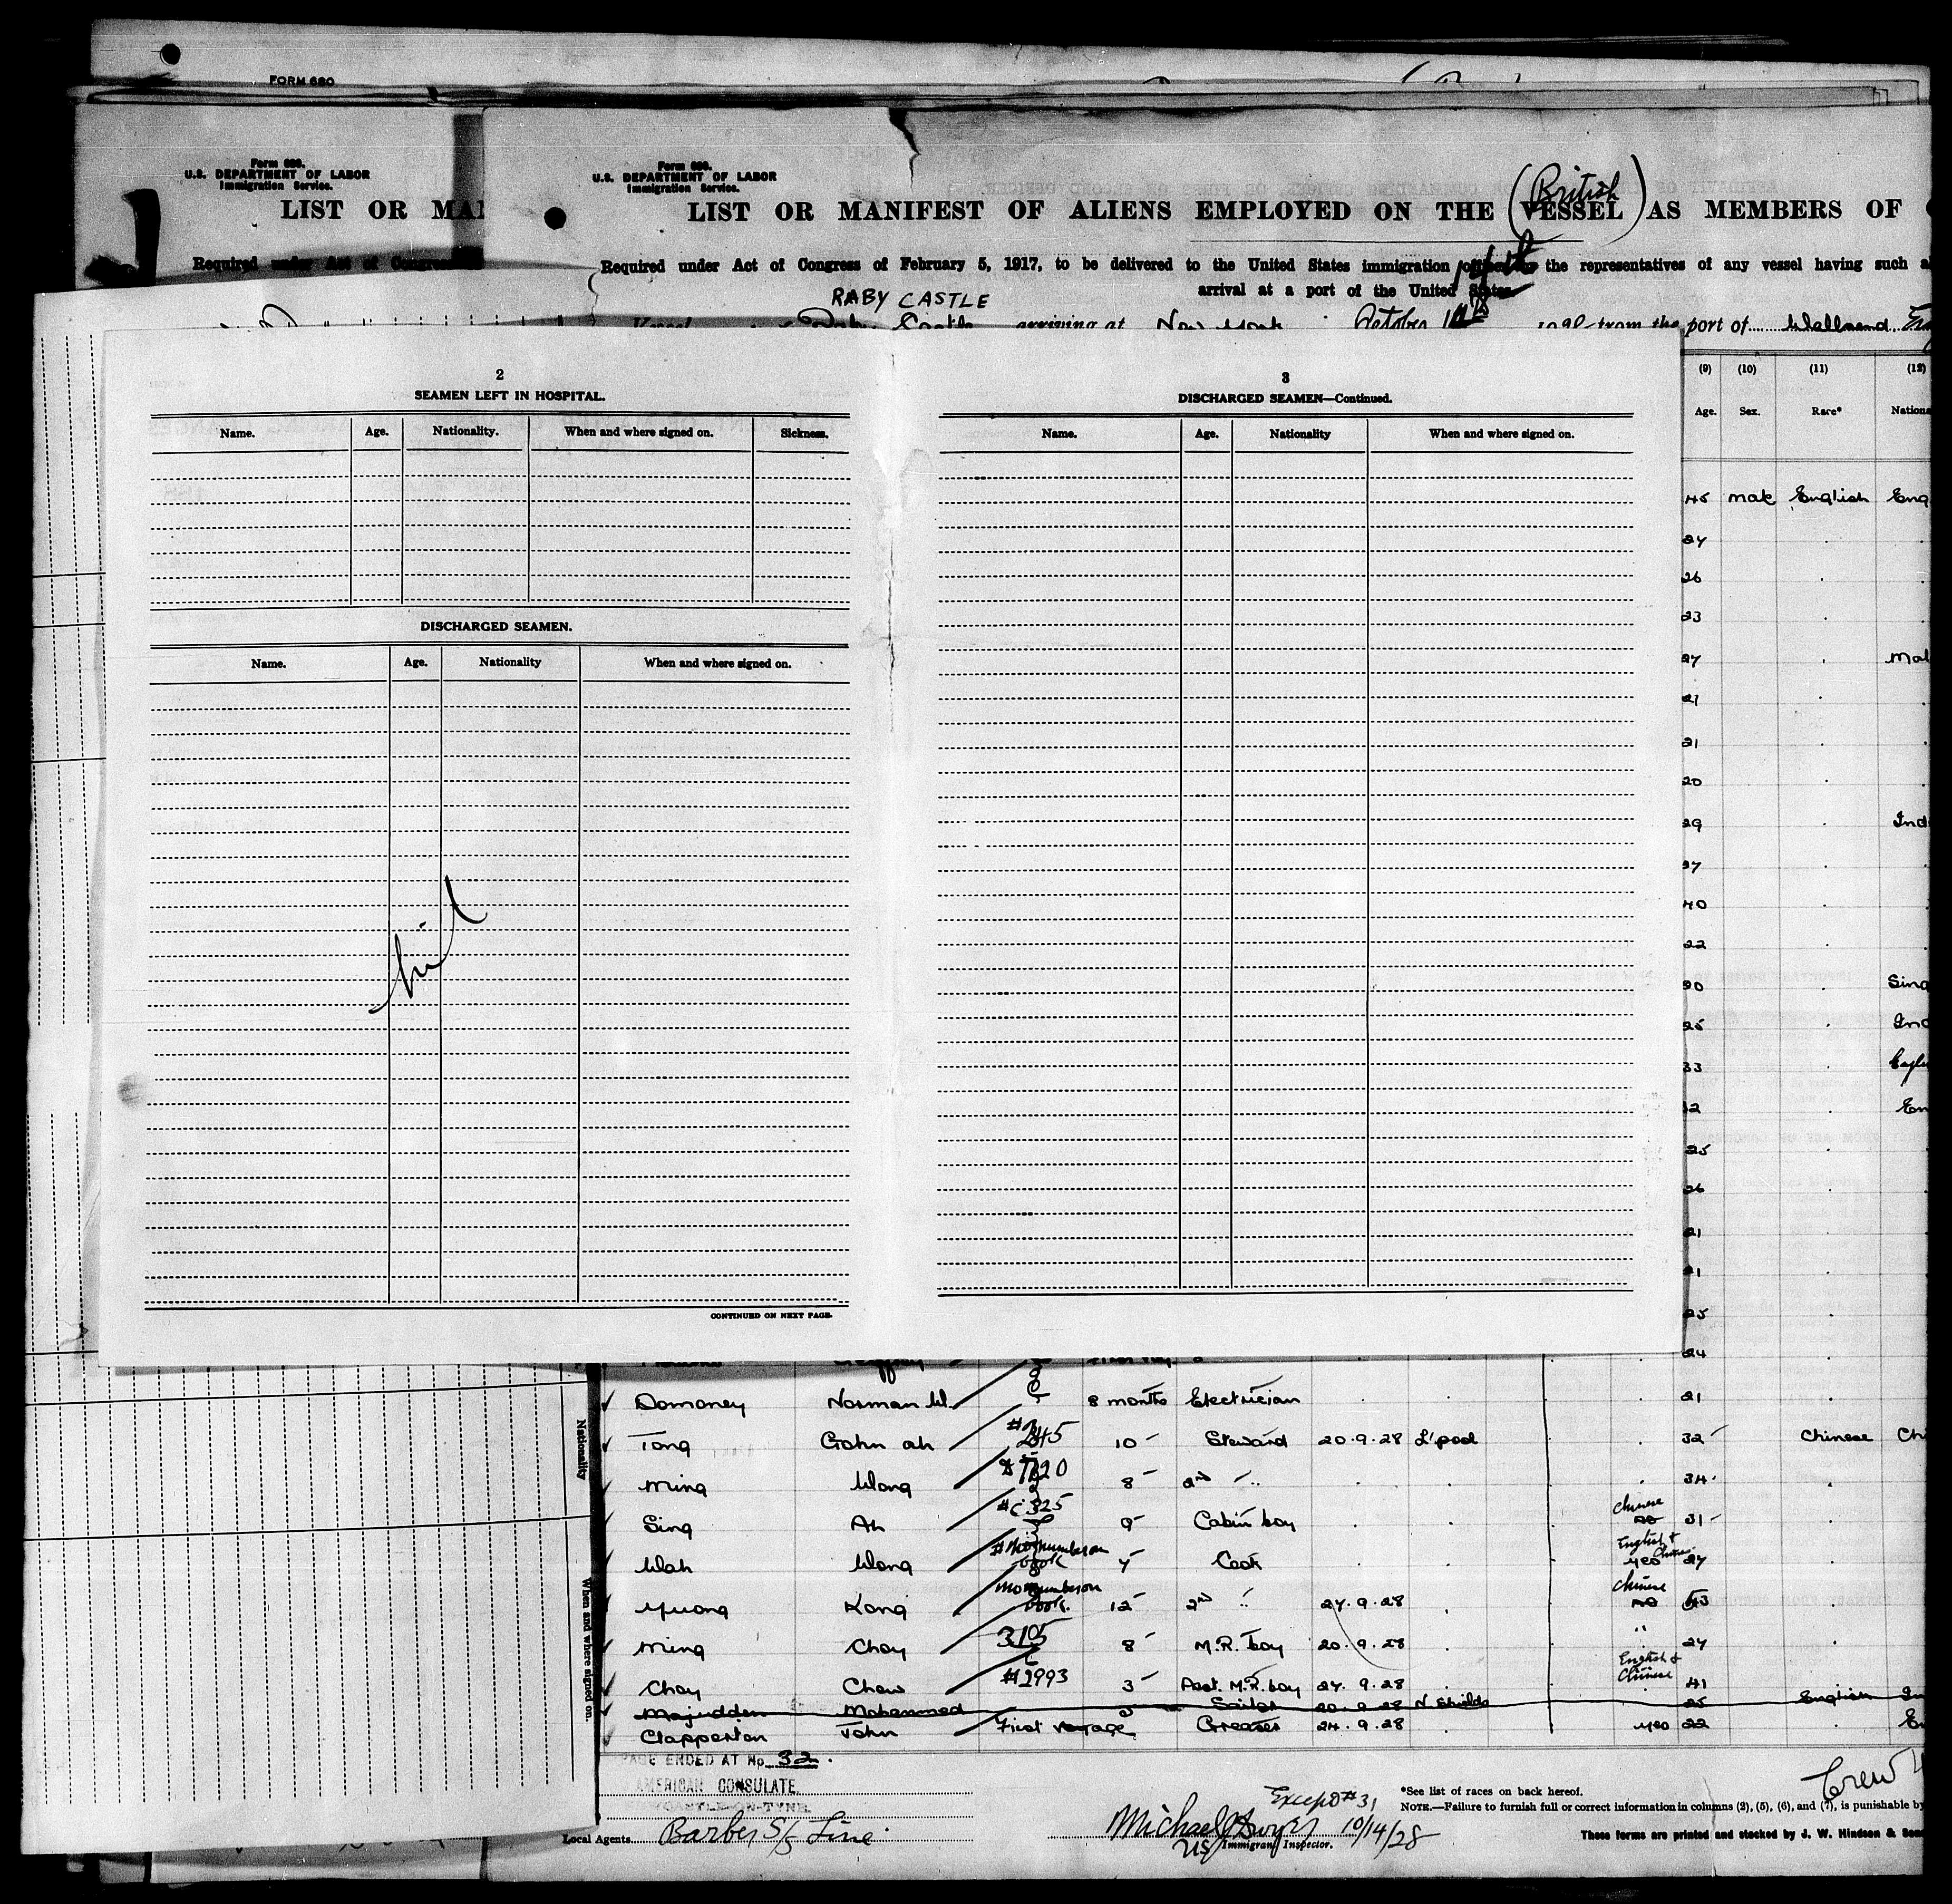 FORM 680
Form 680.
U.S. DEPARTMENT OF LABOR
Immigration Service.
LIST OR MA
Required under Act of Congress
Form 680.
U.S. DEPARTMENT OF LABOR
Immigration Service.
(British)
LIST OR MANIFEST OF ALIENS EMPLOYED ON THE VESSEL AS MEMBERS OF
Required under Act of Congress of February 5, 1917, to be delivered to the United States immigration the representatives of any vessel having such
arrival at a port of the United States
14th
RABY CASTLE
Vessel Raby Castle arriving at New York October from the port of Wallsend
2
SEAMEN LEFT IN HOSPITAL.
Name. Age. Nationality. When and where signed on. Sickness.
DISCHARGED SEAMEN.
Name. Age. Nationality When and where signed on.
Nil
CONTINUED ON NEXT PAGE.
3
DISCHARGED SEAMEN—Continued.
Name. Age. Nationality When and where signed on.
(9) (10) (11) (12)
Age. Sex. Race* Nationa
45 male English Eng
24
26
23
27
21
21
20
29 Ind
27
40
22
30 Sing
25 Ind
33
32 En
25
26
21
21
25
24
Domoney Norman W. 8 months Electrician 21
Tong Gohn ah #245 10 Steward 20.9.28 L'pool 32 Chinese Ch
Ming Wong 8 2nd " 34
Sing Ah 9 Cabin boy Chinese no 31
Wah Wong # no number on book Cook English & Chinese yes 27
Yuong Kong no number on book 12 2nd " 27.9.28 Chinese no 43
Ming Choy 3105 8 M.R. boy 20.9.28 " 27
Choy Chow #2993 3 Asst. M.R. boy 27.9.28 English & Chinese 41
Majuddin Mohammed 3 Sailor 20.9.28 N Shields 25 English In
Clapperton John First voyage Greaser 24.9.28 yes 22 En
PAGE ENDED AT No. 32.
AMERICAN CONSULATE,
NEWCASTLE-ON-TYNE.
Local Agents Barber S/S Line
Except #31
Michael J Dwyer 10/14/28
US Immigrant Inspector.
*See list of races on back hereof.
NOTE.—Failure to furnish full or correct information in columns (2), (5), (6), and (7), is punishable by
Crew
These forms are printed and stocked by J. W. Hindson & Sons
Nationality
When and where signed on.